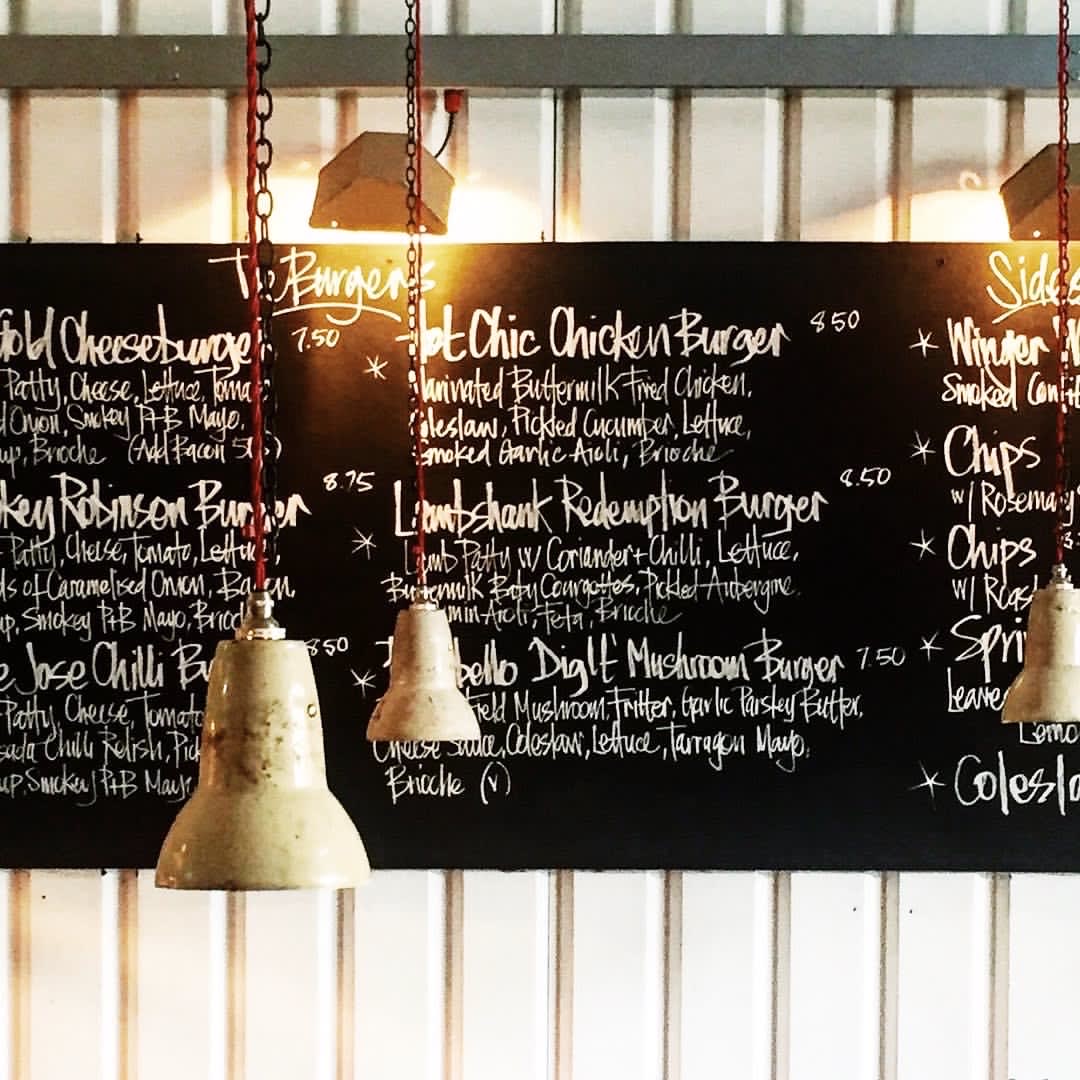 The Burgers
Gold Cheeseburger 7.50
Patty, Cheese, Lettuce, Toma
Onion, Smokey P+B Mayo,
Brioche (Add Bacon
Robinson Burger 8.75
Patty, Cheese, Tomato, Lettuce,
of Caramelised Onion, Bacon,
Smokey P+B Mayo, Brioc
Jose Chilli Bu 8.50
Patty, Cheese, Tomato
Chilli Relish, Pic
Smokey P+B Mayo
* Hot Chic Chicken Burger 8.50
Marinated Buttermilk Fried Chicken,
Coleslaw, Pickled Cucumber, Lettuce,
Smoked Garlic Aioli, Brioche
* Lambshank Redemption Burger 8.50
Lamb Patty w/ Coriander + Chilli, Lettuce,
Buttermilk Baby Courgettes, Pickled Aubergine,
min Aioli, Feta, Brioche
* bello Dig It Mushroom Burger 7.50
Field Mushroom, Fritter, Garlic Parsley Butter,
Cheese Sauce, Coleslaw, Lettuce, Tarragon Mayo,
Brioche (v)
Sides
* Winger
Smoked Confit
* Chips
w/ Rosemary
* Chips
w/ Roas
* Spri
Leave
Lemo
* Colesla